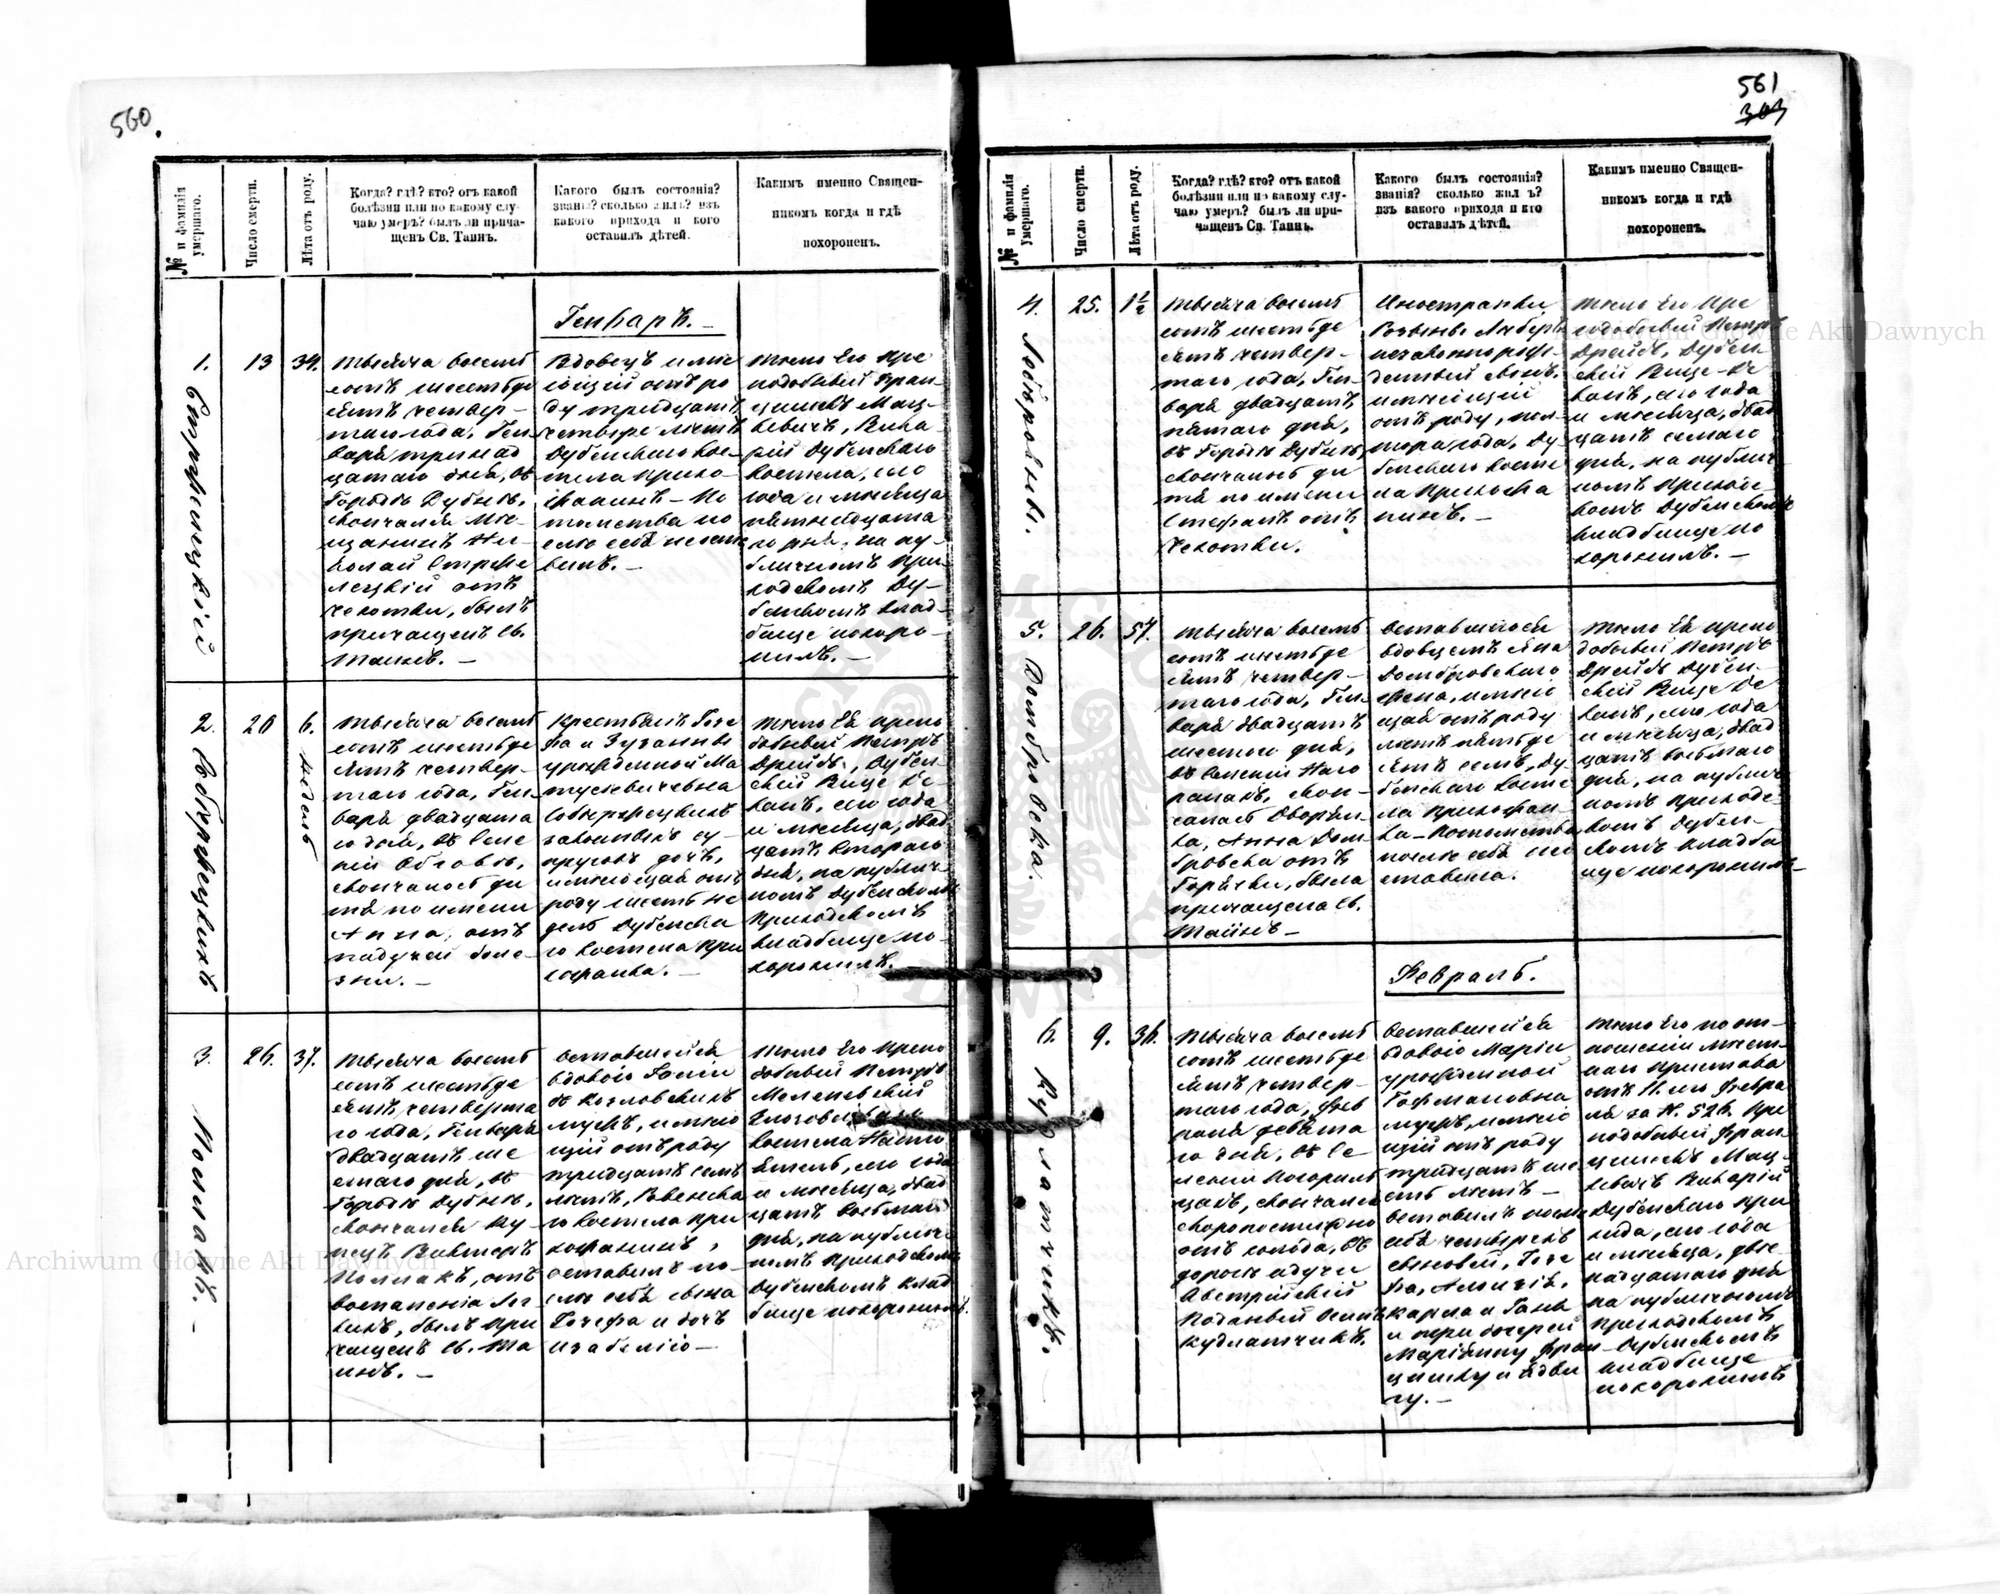 560.
№ и фамилія умершаго.
Число смерти.
Лѣта отъ роду.
Когда? гдѣ? кто? отъ какой
болѣзни или по какому слу-
чаю умеръ? былъ ли прича-
щенъ Св. Таинъ.
Какого былъ состоянія?
званія? сколько жилъ? изъ
какого прихода и кого
оставилъ дѣтей.
Какимъ именно Священ-
никомъ когда и гдѣ
похороненъ.
Генварь.
1.
13
34.
Тысяча восемь
сотъ шестьде
сятъ четвер-
таго года, Ген-
варя тринад
цатаго дня, въ
Городѣ Дубнѣ,
скончался Мѣ-
щанинъ Ни-
колай
лецкій отъ
чахотки, былъ
причащенъ Св.
Таинъ. —
Вдовецъ имѣ
ющій отъ ро
ду тридцать
четыре лѣтъ
Дубенскаго кос-
тела прихо-
жанинъ — По
томства по
слѣ себя не оста
вилъ. —
Тѣло Его Пре
подобный Фран
цишекъ Мац-
кевичъ, Вика-
рій Дубенскаго
костела, сего
года и мѣсяца
пятнадцата
го дня, на пу-
бличномъ При
ходскомъ Ду-
бенскомъ клад-
бище похоро-
нилъ. —
2.
20
6.
недель
Тысяча восемь
сотъ шестьде
сятъ четвер-
таго года, Ген-
варя двадцата
го дня, въ Селе
ніи
скончалось ди
тя по имени
Анна, отъ
падучей боле-
зни. —
Крестьянъ Іозе
фа и Зузанны
урожденной Ма
тусевичевна
законныхъ су-
пруговъ дочь,
имѣющая отъ
роду шесть не
дель Дубенска
го костела при
хожанка. —
Тѣло Ея препо
добный Петръ
Дрейбъ, Дубен-
скій Вице Де-
канъ, сего года
и мѣсяца, двад
цать втораго
дня, на публич-
номъ Дубенскомъ
Приходскомъ
кладбище по-
хоронилъ.
3.
26.
37.
Поллакъ. —
Тысяча восемь
сотъ шестьде
сятъ четверта
го года, Генваря
двадцать ше
стаго дня, въ
Городѣ Дубнѣ,
скончался Ку
пецъ Викторъ
Поллакъ, отъ
воспаленія Лег
кихъ, былъ при
чащенъ Св. Та
инъ. —
Оставшейся
вдовою
Козловскихъ
мужъ, имѣю
щій отъ роду
тридцать семь
лѣтъ, Ровенска
го костела при
хожанинъ,
оставилъ по-
слѣ себя сына
Іозефа и дочь
Изабеллю —
Тѣло Его Препо
добный Петръ
костела Насто
ятель, сего года
и мѣсяца, двад
цать восьмаго
дня, на публич-
номъ Приходскомъ
Дубенскомъ клад
бище похоронилъ.
561
303
№ и фамилія умершаго.
Число смерти.
Лѣта отъ роду.
Когда? гдѣ? кто? отъ какой
болѣзни или по какому слу-
чаю умеръ? былъ ли при-
чащенъ Св. Таинъ.
Какого былъ состоянія?
званія? сколько жилъ?
изъ какого прихода и кто
оставилъ дѣтей.
Какимъ именно Священ-
никомъ когда и гдѣ
похороненъ.
4.
25.
1½
Тысяча восемь
сотъ шестьде
сятъ четвер-
таго года, Ген-
варя двадцать
пятаго дня,
въ Городѣ Дубнѣ,
скончалось ди
тя по имени
Стефанъ отъ
Чахотки.
Иностранки
незаконнорож-
денный сынъ,
имѣющій
отъ роду, пол-
тора года, Ду-
бенскаго косте
ла Прихожа
нинъ. —
Тѣло Его Пре
подобный Петръ
Дрейбъ, Дубен-
скій Вице-Де
канъ, сего года
и мѣсяца, двад
цать седмаго
дня, на публич-
номъ Приход-
скомъ Дубенскомъ
кладбище по
хоронилъ. —
5.
26.
57.
Домбровска.
Тысяча восемь
сотъ шестьде
сятъ четвер-
таго года, Ген-
варя двадцать
шестаго дня,
въ Селеніи
скон-
чалась Дворян-
ка, Анна Дом-
бровска отъ
Горячки, была
причащена Св.
Таинъ —
Оставшагося
вдовцемъ Яна
Домбровскаго
жена, имѣю
щая отъ роду
лѣтъ пятьде
сятъ семь, Ду
бенскаго косте
ла Прихожан
ка — Потомства
послѣ себя не
оставила.
Тѣло Ея препо
добный Петръ
Дрейбъ Дубен-
скій Вице Де
канъ, сего года
и мѣсяца, двад
цать восьмаго
дня, на публич-
номъ приходс-
комъ Дубен-
скомъ кладби
ще похоронилъ —
Февраль.
6.
9.
36.
Кудлатчикъ.
Тысяча восемь
сотъ шестьде
сятъ четвер-
таго года, Фев
раля девята
го дня, въ Се
леніи
скончался
скоропостижно
отъ холода, въ
дорогѣ идучи
Австрійскій
Подданый
Кудлатчикъ.
Оставшейся
вдовою Маріи
урожденной
Гофмановна
мужъ, имѣю
щій отъ роду
тридцать ше
сть лѣтъ —
Оставилъ послѣ
себя четырехъ
сыновей, Іозе
фа,
Карла и
и три дочерей
Маріянну Фран
цишку и Ядви
гу. —
Тѣло Его по от-
ношеніи мѣст-
наго Пристава
отъ 11. го Февра
ля за №. 526. Пре
подобный Фран
цишекъ Мац-
кевичъ Викарій
Дубенскаго При
хода, сего года
и мѣсяца, двѣ-
надцатаго дня
на публичномъ
приходскомъ
Дубенскомъ
кладбище
похоронилъ
Archiwum Główne Akt Dawnych